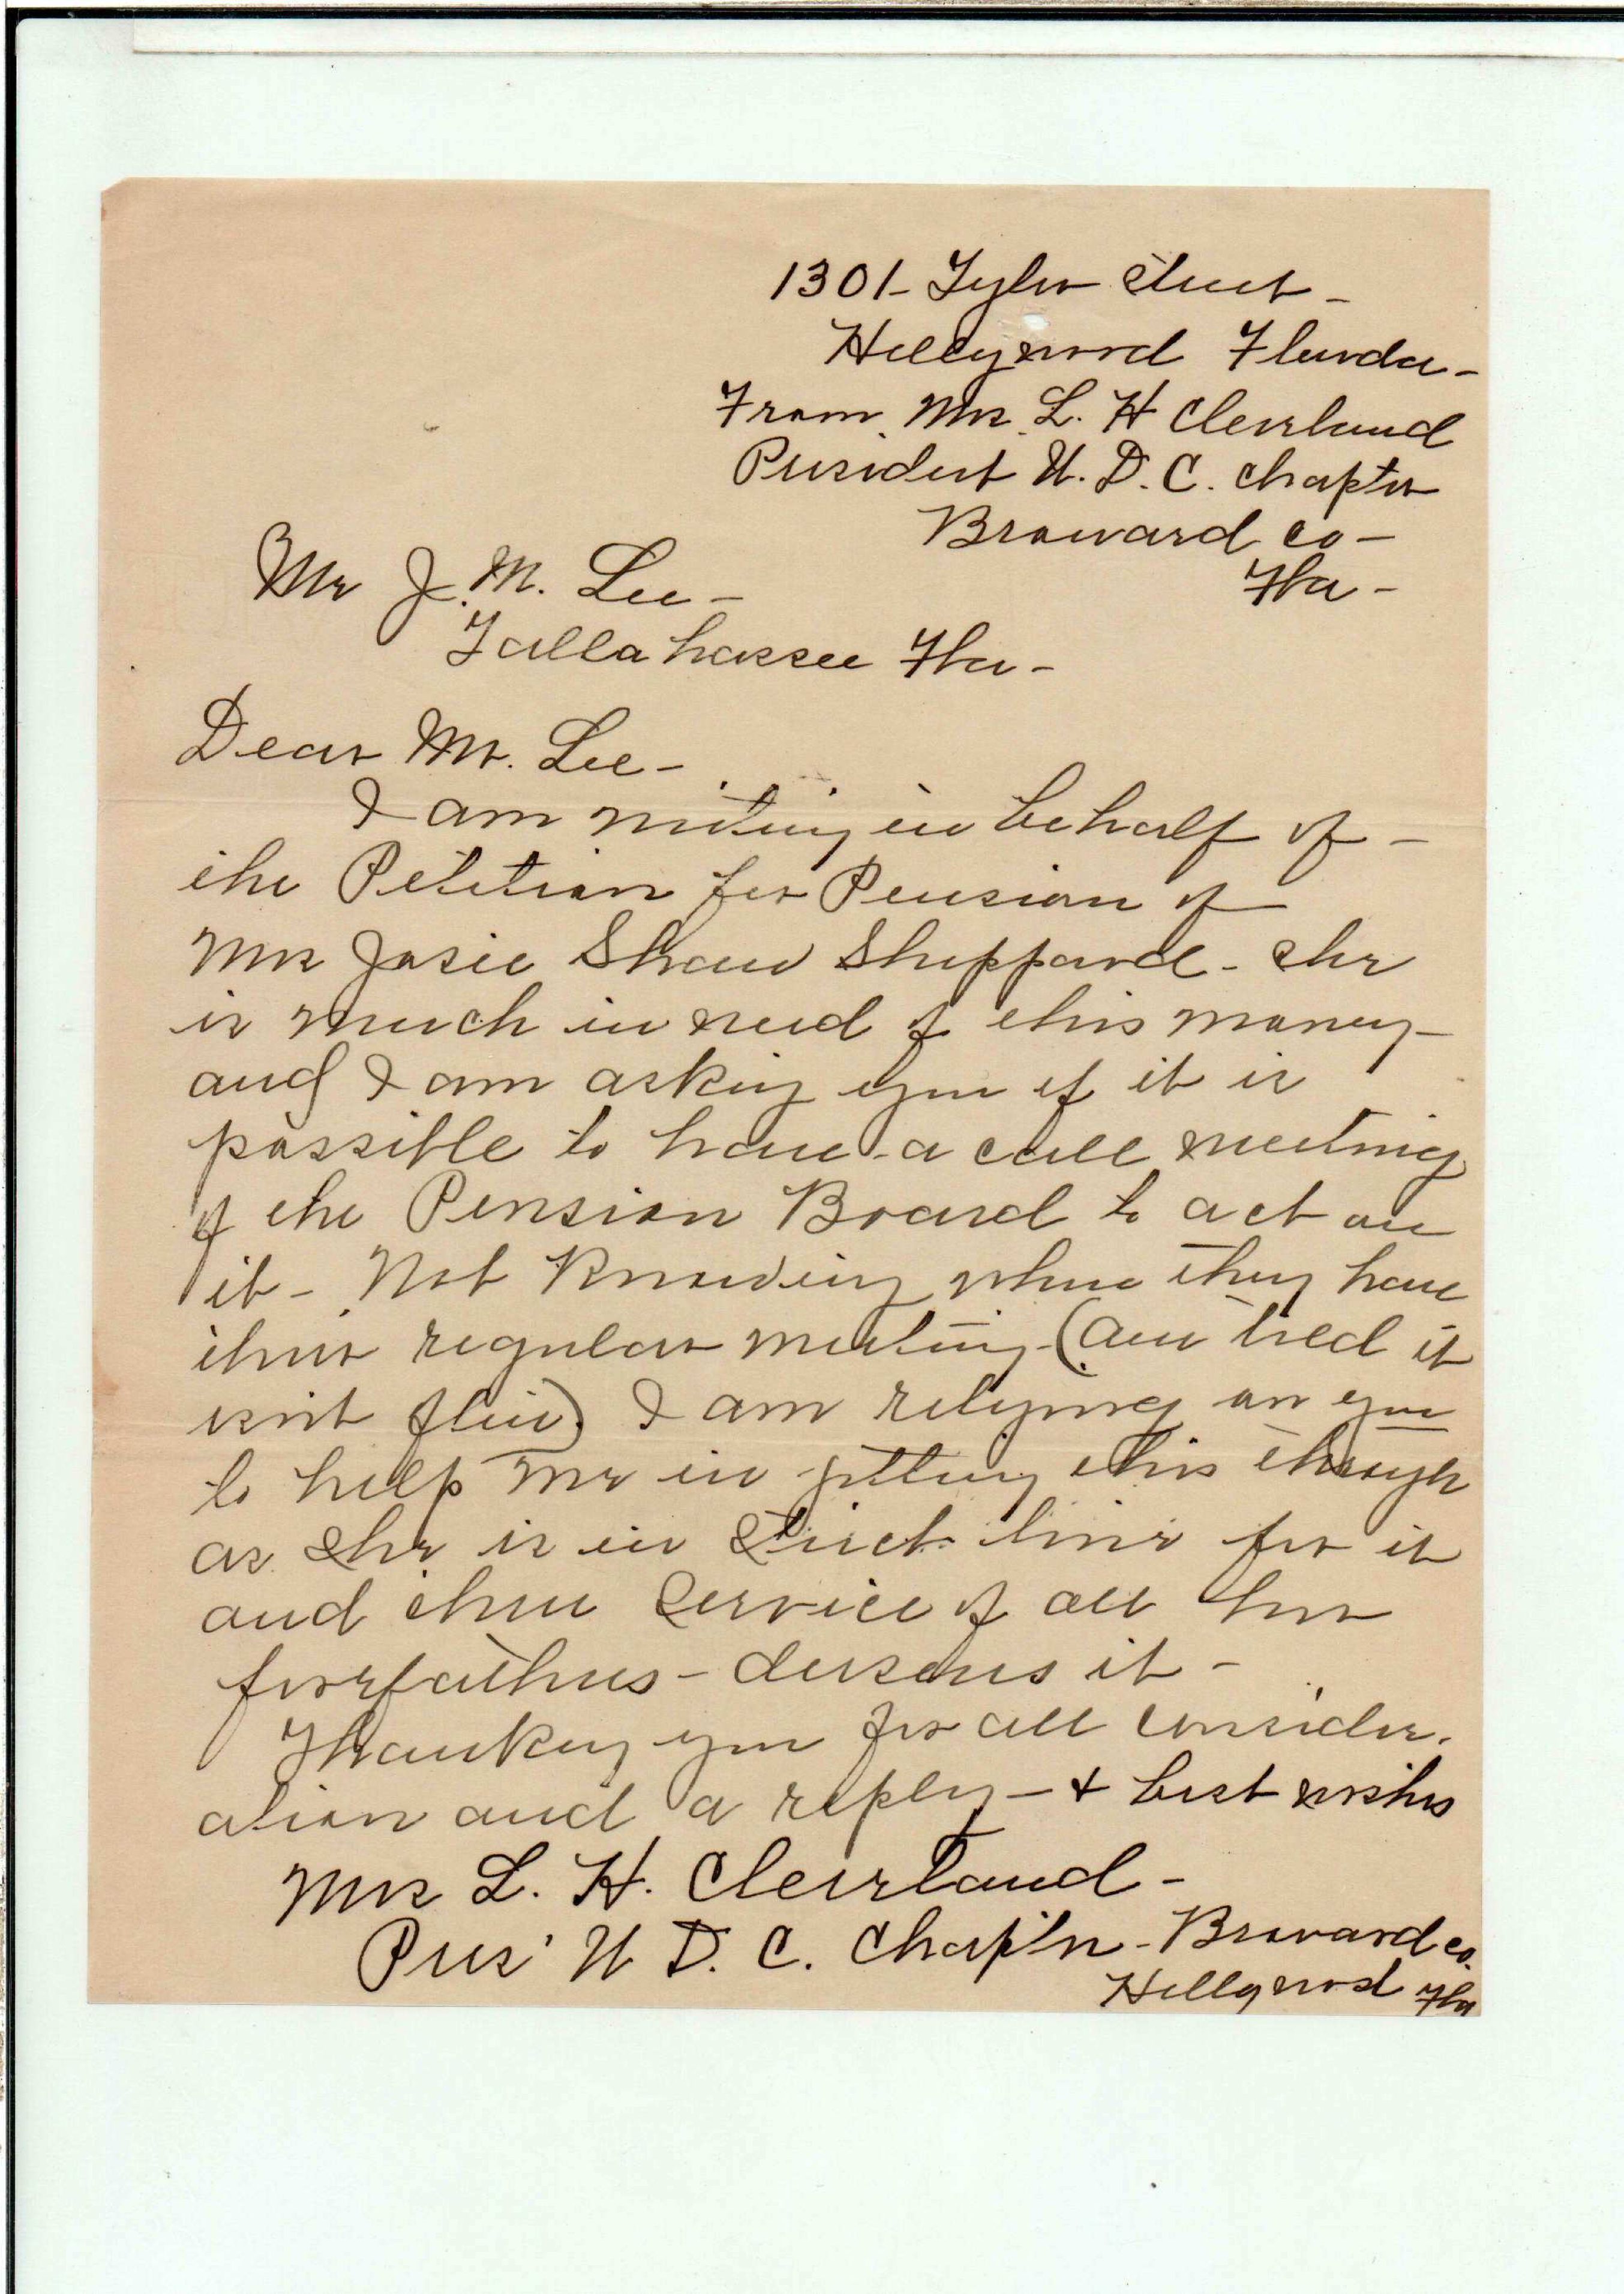 1301 - Tyler Street -
Hollywood Florida -
From Mrs L. H Cleveland
President U. D. C. Chapter
Broward Co -
Fla -
Mr J. M. Lee -
Tallahassee Fla -
Dear Mr. Lee -
I am writing in behalf of -
the Petition for Pension of
Mrs Josie Shaw Sheppard - She
is much in need of this money -
and I am asking you if it is
possible to have - a call meeting
of the Pension Board to act on
it - Not Knowing when they have
their regular meeting - (
isnt ) I am relying on you
to help me in getting this through
as she is in direct line for it
and the service of all her
forefathers - deserves it -
Thanking you for all consider-
ation and a reply - + best wishes
Mrs L. H. Cleveland -
Pres' U D. C. Chap'tr - Broward Co.
Hollywood Fla